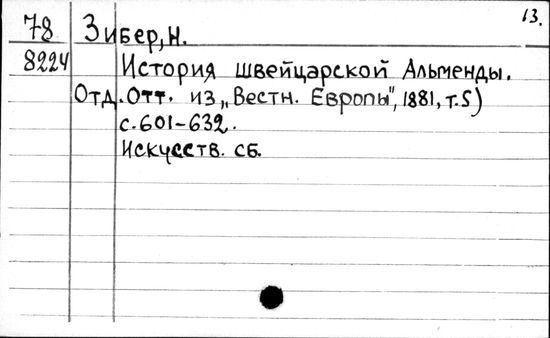 13.
78 Зибер, Н.
8224 История швейцарской Альменды.
Отд. Отт. из „Вестн. Европы", 1881, т.5)
с.601-632.
Искусств. сб.